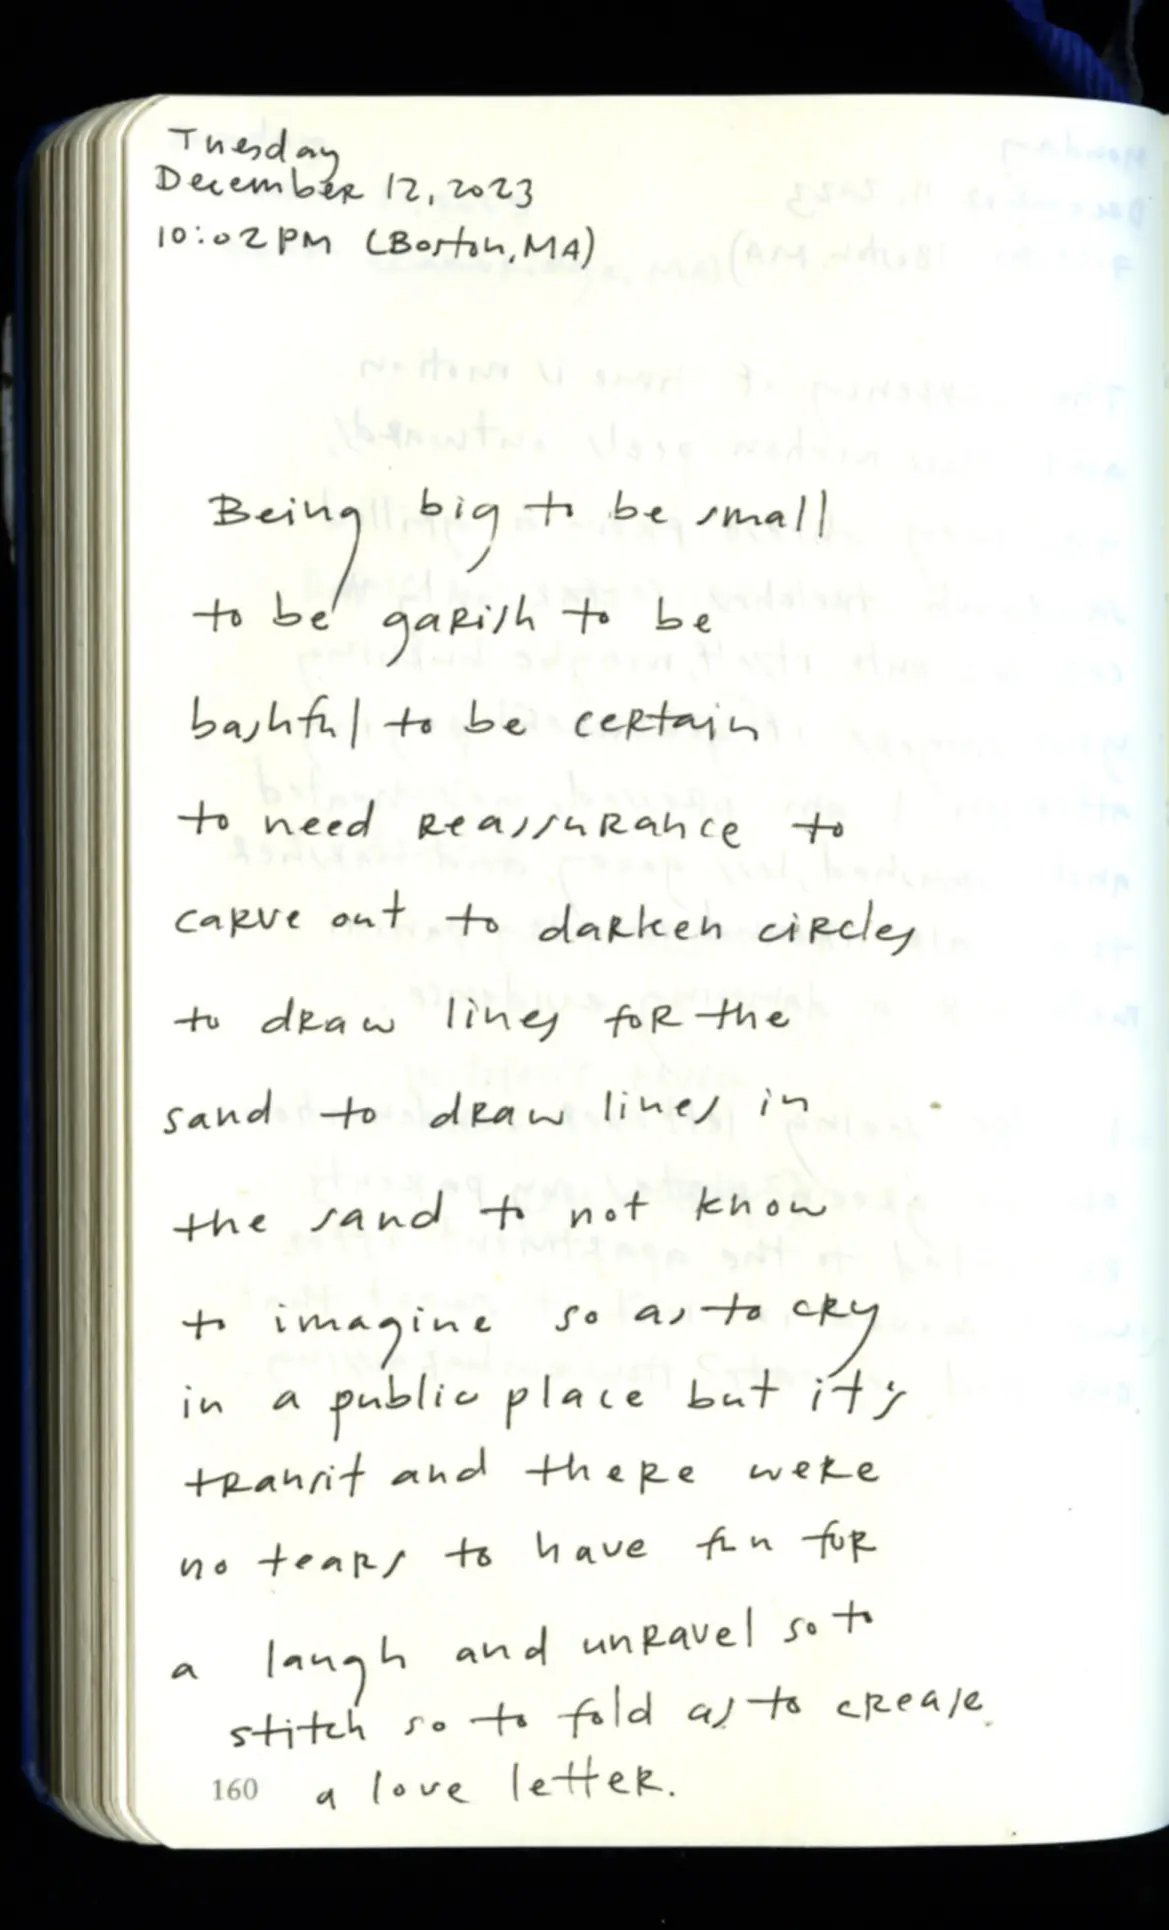 Tuesday
December 12, 2023
10:02 PM (Boston, MA)
Being big to be small
to be garish to be
bashful to be certain
to need reassurance to
carve out to darken circles
to draw lines for the
sand to draw lines in
the sand to not know
to imagine so as to cry
in a public place but it's
transit and there were
no tears to have fun for
a laugh and unravel so to
stitch so to fold as to crease
a love letter.
160